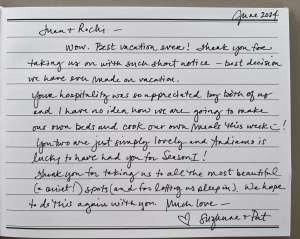 June 2024
Juan + Rocks —
Wow. Best vacation ever! Thank you for
taking us on with such short notice – best decision
we have ever made on vacation.
Your hospitality was so appreciated by both of us
and I have no idea how we are going to make
our own beds and cook our own meals this week :)!
You two are just simply lovely and Andiamo is
lucky to have had you for Season 1!
Thank you for taking us to all the most beautiful
(+ quiet!) spots (and for letting us sleep in). We hope
to do this again with you. Much love —
♡ Suzanne + Pat